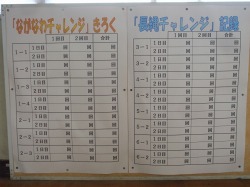 「ながなわチャレンジ」きろく
1回目 2回目 合計
1-1 1日目 回 回 回
2日目 回 回 回
1-2 1日目 回 回 回
2日目 回 回 回
1日目 回 回 回
2日目 回 回 回
1日目 回 回 回
2日目 回 回 回
1日目 回 回 回
2日目 回 回 回
1日目 回 回 回
2日目 回 回 回
「長縄チャレンジ」記録
1回目 2回目 合計
3-1 1日目 回 回 回
2日目 回 回 回
3-2 1日目 回 回 回
2日目 回 回 回
1日目 回 回 回
2日目 回 回 回
1日目 回 回 回
2日目 回 回 回
1日目 回 回 回
2日目 回 回 回
1日目 回 回 回
2日目 回 回 回